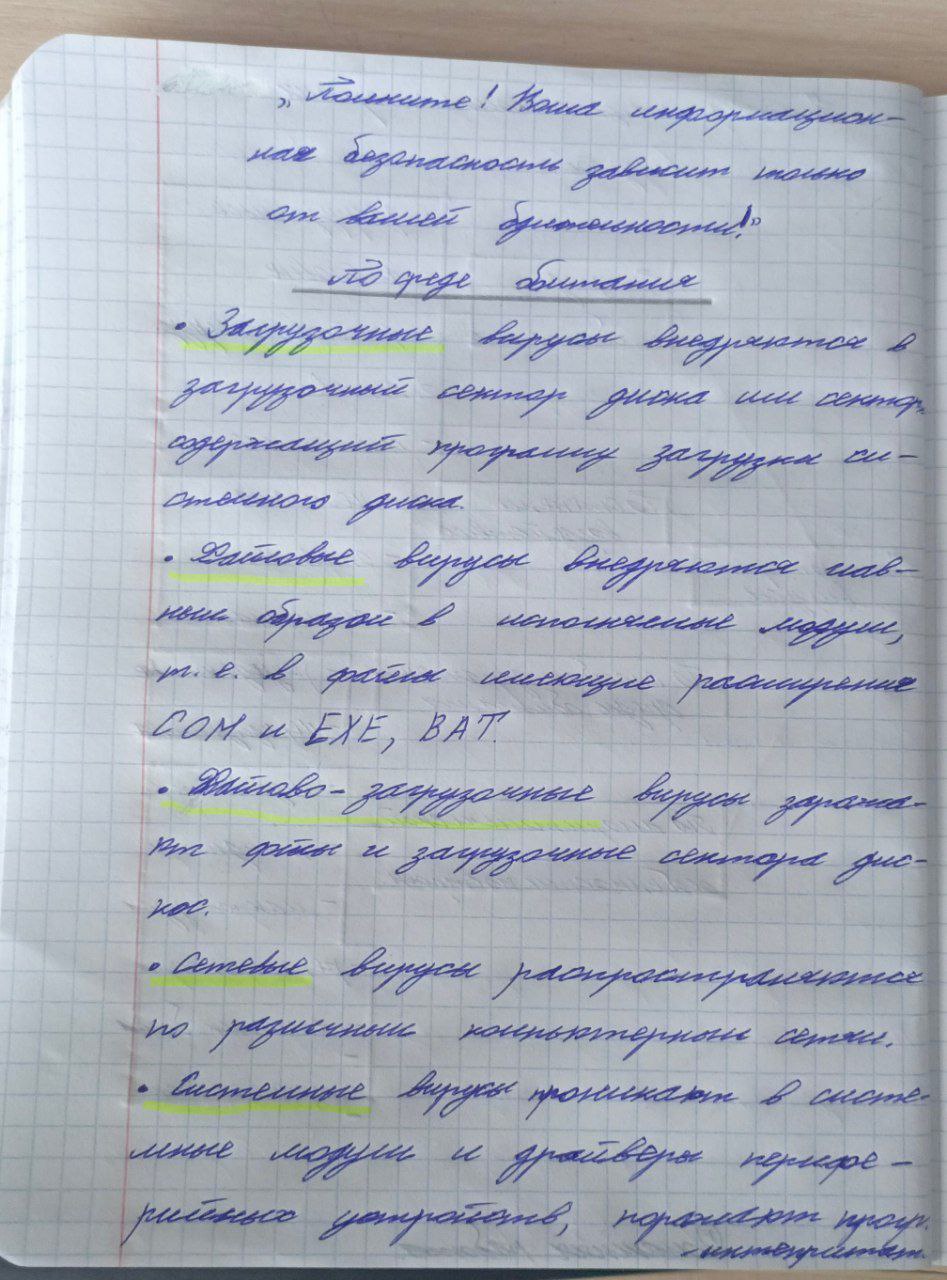 „Помните! Ваша информацион-
ная безопасность зависит только
от вашей бдительности!"
По среде обитания
• Загрузочные вирусы внедряются в
загрузочный сектор диска или сектор,
содержащий программу загрузки си-
стемного диска.
• Файловые вирусы внедряются глав-
ным образом в исполняемые модули,
т. е. в файлы имеющие расширения
COM и EXE, BAT.
• Файлово-загрузочные вирусы заража-
ют файлы и загрузочные сектора дис-
ков.
• Сетевые вирусы распространяются
по различным компьютерным сетям.
• Системные вирусы проникают в систе-
мные модули и драйверы перифе-
рийных устройств, поражают прогр.
-интерпритат.